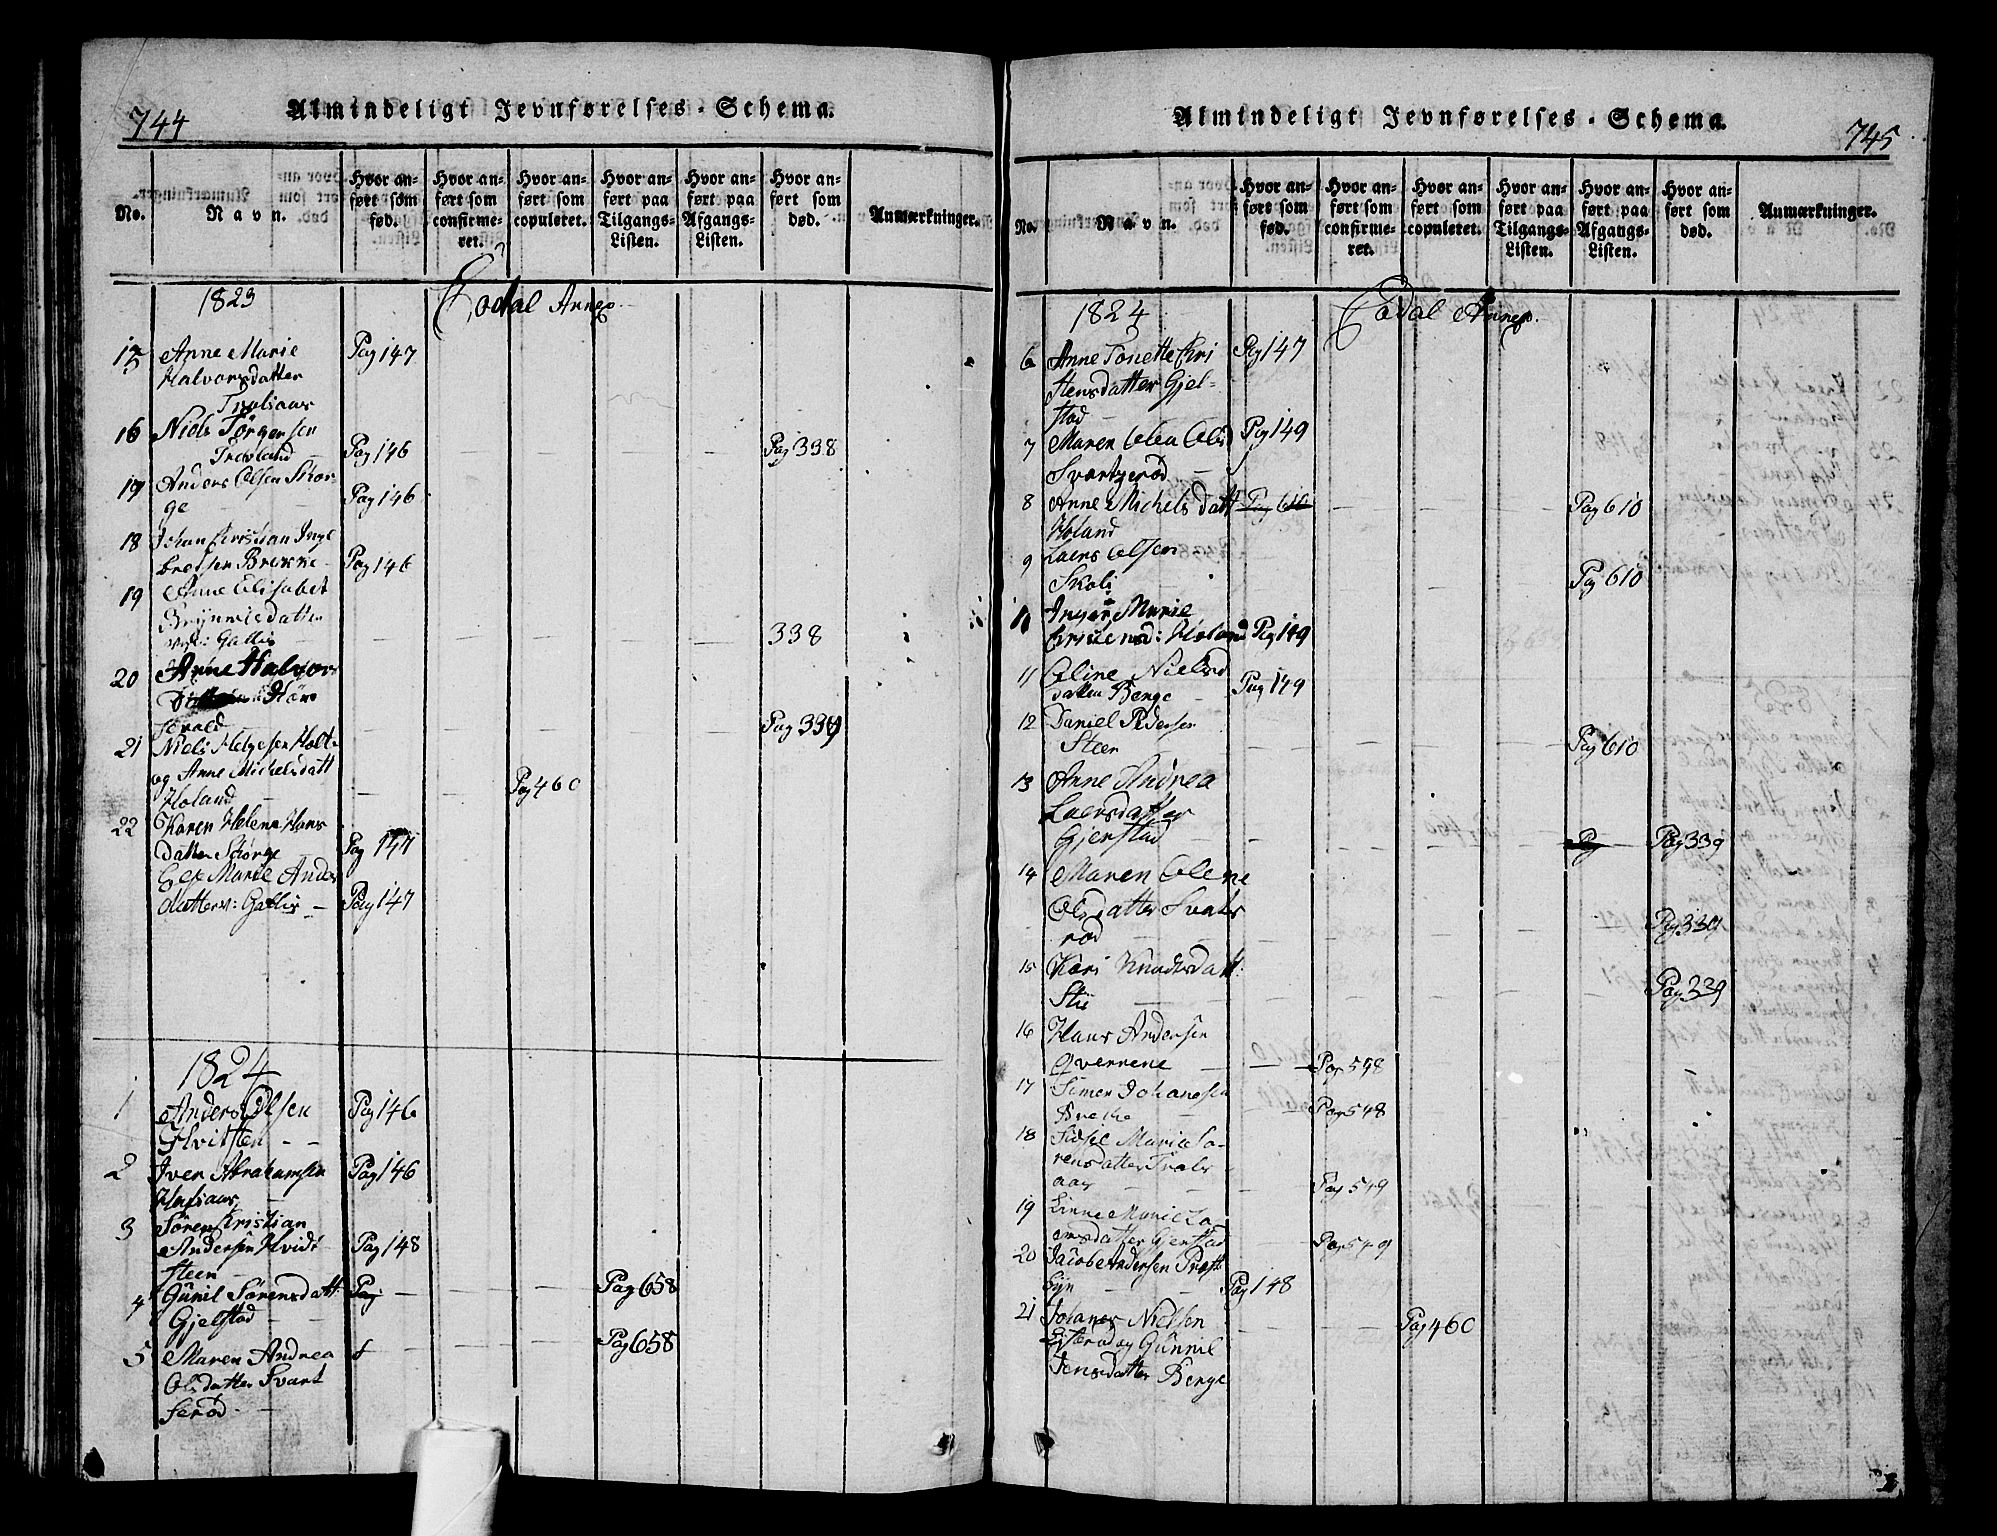 744
Almindeligt Jevnførelses-Schema.
No.
Navn.
Hvor an-
ført som
fød.
Hvor an-
ført som
confirme-
ret.
Hvor an-
ført som
copuleret.
Hvor an-
ført paa
Tilgangs-
Listen.
Hvor an-
ført paa
Afgangs-
Listen.
Hvor an-
ført som
død.
Anmærkninger.
1823
Eodal Annex.
Anne Marie Pag 147
Halvorsdatter
16 Niels Törgersen
Pag 146 Pag 338
19 Anders Olsen Skor-
ge Pag 146
18 Johan Kristian Inge
bretsen Brekke Pag 146
19 Anne Elisabet
338
20 Anne Halvors
Pag 339
21 Niels Helgesen Holt
og Anne Michelsdatt
Holand Pag 460
22 Karen Helene Hans
datter Skorge Pag 147
Else Marie Anders
datter Pag 147
1824
1 Anders Olsen Pag 146
Hvitsten
2 Iver Abrahamsen Pag 146
3 Sören Kristian
Andersen Hvidt Pag 148
steen
4 Gunil Sörensdatt: Pag Pag 658
Gjelstad
5 Maren Andrea Pag 658
Olsdatter Svart
serod
Almindeligt Jevnførelses-Schema.
745
No.
Navn.
Hvor an-
ført som
fød.
Hvor an-
ført som
confirme-
ret.
Hvor an-
ført som
copuleret.
Hvor an-
ført paa
Tilgangs-
Listen.
Hvor an-
ført paa
Afgangs-
Listen.
Hvor an-
ført som
død.
Anmærkninger.
1824
Eodal Annex.
6 Anne Tonette Kri Pag 147
stensdatter Gjel-
stad
7 Maren Olea Olsd Pag 149
8 Anne Michelsdatt Pag 610 Pag 610
Holand
9 Laers Olsen
Skoli Pag 610
10 Inger Marie
Holand Pag 149
11 Oline Nielsd
datter Berge Pag 149
12 Daniel Pedersen
Steen Pag 610
13 Anne Andrea
Laersdatter
Gjerstad Pag Pag 339
14 Maren Olene
Olsdatter Svats
rod Pag 339
15 Kari Knudtsdatt:
Stii Pag 339
16 Hans Andersen
Qverrene Pag 548
17 Simen Johanesen
Breche Pag 548
18 Sidsel Maria La-
rensdatter
Pag 549
19 Linne Marie La
ersdatter Gjerstad Pag 549
20 Jacob Andersen Præst
Pag 148
21 Johanes Nielsen
og Gunnil Pag 460
Jensdatter Berge